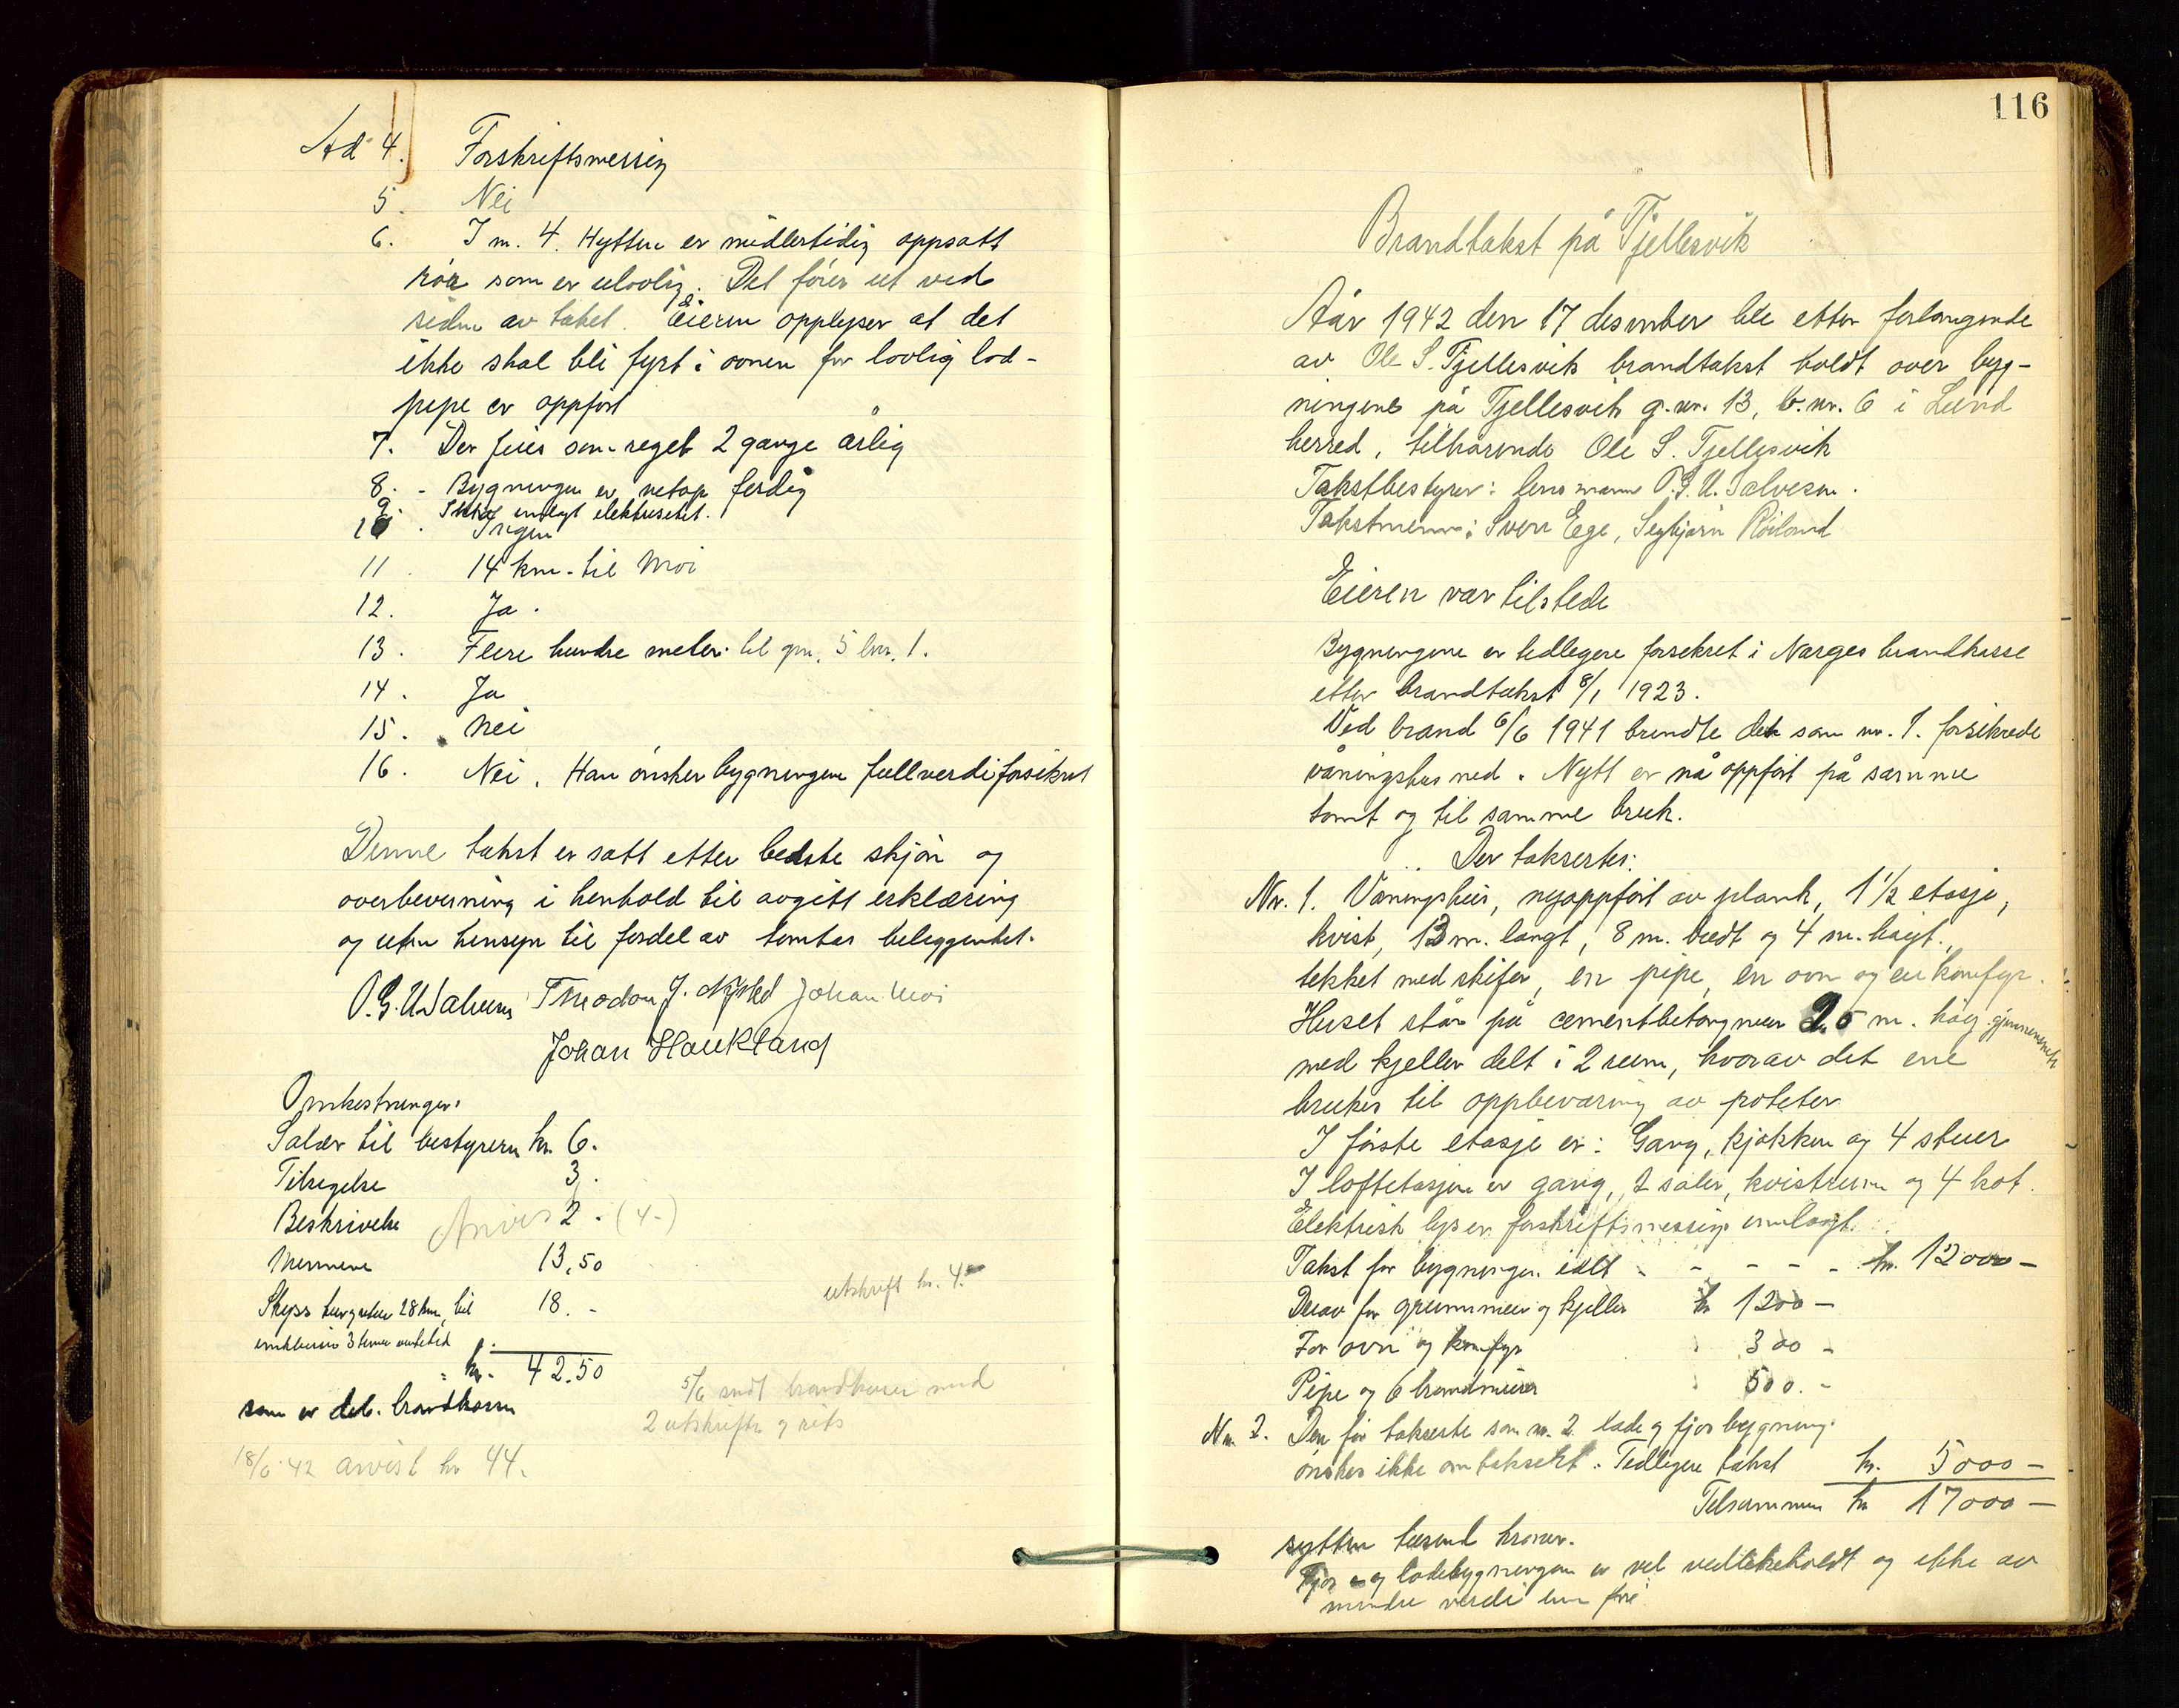 Ad 4. Forskriftsmessig
5. Nei
6. I nr. 4. Hytten er midlertidig oppsatt
rör som er ulovlig. Det förer ut ved
siden av taket. Eieren opplyser at det
ikke skal bli fyrt i ovnen før lovlig lod-
pipe er oppført
7. Der feies som regel 2 gange årlig
8. - Bygningen er netop ferdig
9. innlagt elektrisitet.
10. Ingen
11. 14 km. til Moi
12. Ja.
13. Flere hundre meter til gnr. 5 bnr. 1.
14. Ja
15. Nei
16. Nei. Han ønsker bygningene fullverdiforsikret
Denne takst er satt etter bedste skjøn og
overbevisning i henhold til avgitt erklæring
og uten hensyn til fordel av tomtas beliggenhet.
O.G.U. Salvesen Theodor J. Nysted Johan Moi
Johan Haukland
Omkostninger:
Salær til bestyreren kr. 6.
Tilsigelse 3.
Beskrivelse Anvis 2. (4-)
Mennene 13,50
utskrift kr. 4.-
Skyss tur retur 28 km, bil 18. -
3 timer ventetid
kr. 42.50
som er deb. brandkassen
5/6 sendt brandkassen med
2 utskrifter og
18/6 42 anvist kr 44.
116
Brandtakst på Tjellesvik
Aar 1942 den 17 desember ble etter forlangende
av Ole S. Tjellesvik brandtakst holdt over byg-
ningene på Tjellesvik g.nr. 13, b.nr. 6 i Lund
herred, tilhørende Ole S. Tjellesvik
Takstbestyrer: lensmann O.G.U. Salvesen.
Takstmenn: Sven Ege, Segbjørn Røiland
Eieren var tilstede
Bygningene er tidligere forsikret i Norges brandkasse
etter brandtakst 8/1 1923.
Ved brand 6/6 1941 brendte det som nr. 1. forsikrede
våningshus ned. Nytt er nå oppført på samme
tomt og til samme bruk.
Der takseres:
Nr. 1. Våningshus, nyoppført av plank, 1 1/2 etasje,
kvist, 13 m. langt, 8 m. bredt og 4 m. høgt.,
tekket med skifer, en pipe, en ovn og en komfyr.
Huset står på cementbetongmur 2.5 m. høg gjennemsnitt
med kjeller delt i 2 rum, hvorav det ene
brukes til oppbevaring av poteter
I første etasje er: Gang, kjøkken og 4 stuer
I loftetasjen er gang, 2 saler, kvistrum og 4 kot.
Elektrisk lys er forskriftsmessig innlagt.
Takst for bygningen i alt - - - - - kr. 12000 -
Derav for grunnmur og kjeller kr 1200 -
For ovn og komfyr 300 -
Pipe og 6 brandmurer 500. -
Nr. 2. Den før takserte som nr. 2. lade og fjøsbygning
ønskes ikke omtaksert. Tidligere takst kr. 5000 -
Tilsammen kr 17000 -
sytten tusend kroner.
Fjøs og ladebygningen er vel vedlikeholdt og ikke av
mindre verdi enn før